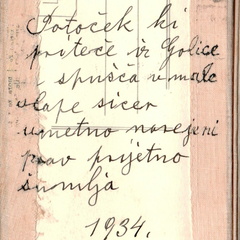 Potoček ki
priteče iz Golice
spušča v male
slape sicer
umetno narejeni
prav prijetno
šumlja
1934.